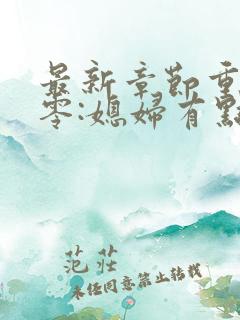 最新章節重
零:媳婦有點
范莊
未经同意禁止转载